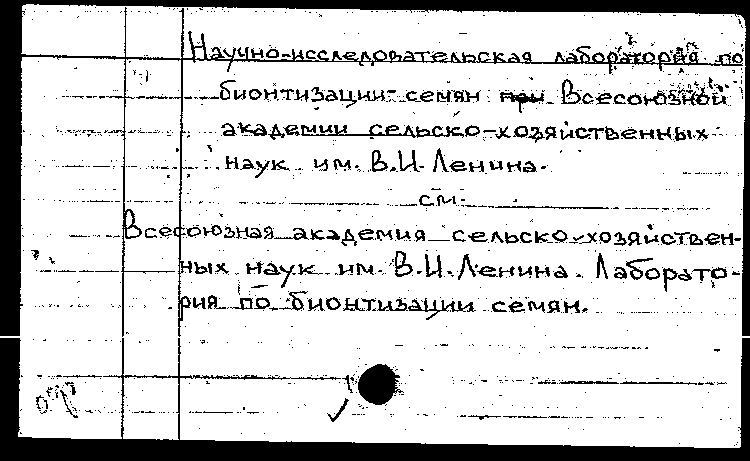 Научно-исследовательская лаборатория по
бионтизации семян при Всесоюзной
академии сельско-хозяйственных
наук им. В.И. Ленина.
см.
Всесоюзная академия сельско-хозяйствен-
ных наук им. В.И. Ленина. Лаборато-
рия по бионтизации семян.